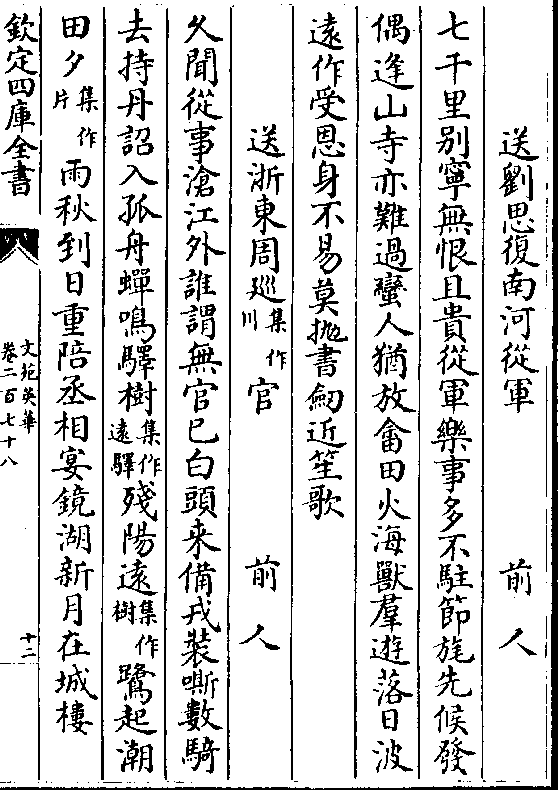 送劉思復南河從軍 前人
七千里别寧無恨且貴從軍樂事多不駐節旄先候發
偶逢山寺亦難過蠻人猶放畬田火海獸羣遊落日波
遠作受恩身不易莫抛書劒近笙歌
送浙東周巡集作川官 前人
久聞從事滄江外誰謂無官已白頭來備戎裝嘶數騎
去持丹詔入孤舟蟬鳴驛樹集作遠驛殘陽遠集作樹鷺起潮
田夕集作片雨秋到日重陪丞相宴鏡湖新月在城樓
欽定四庫全書
文苑英華
卷二百七十八
十二